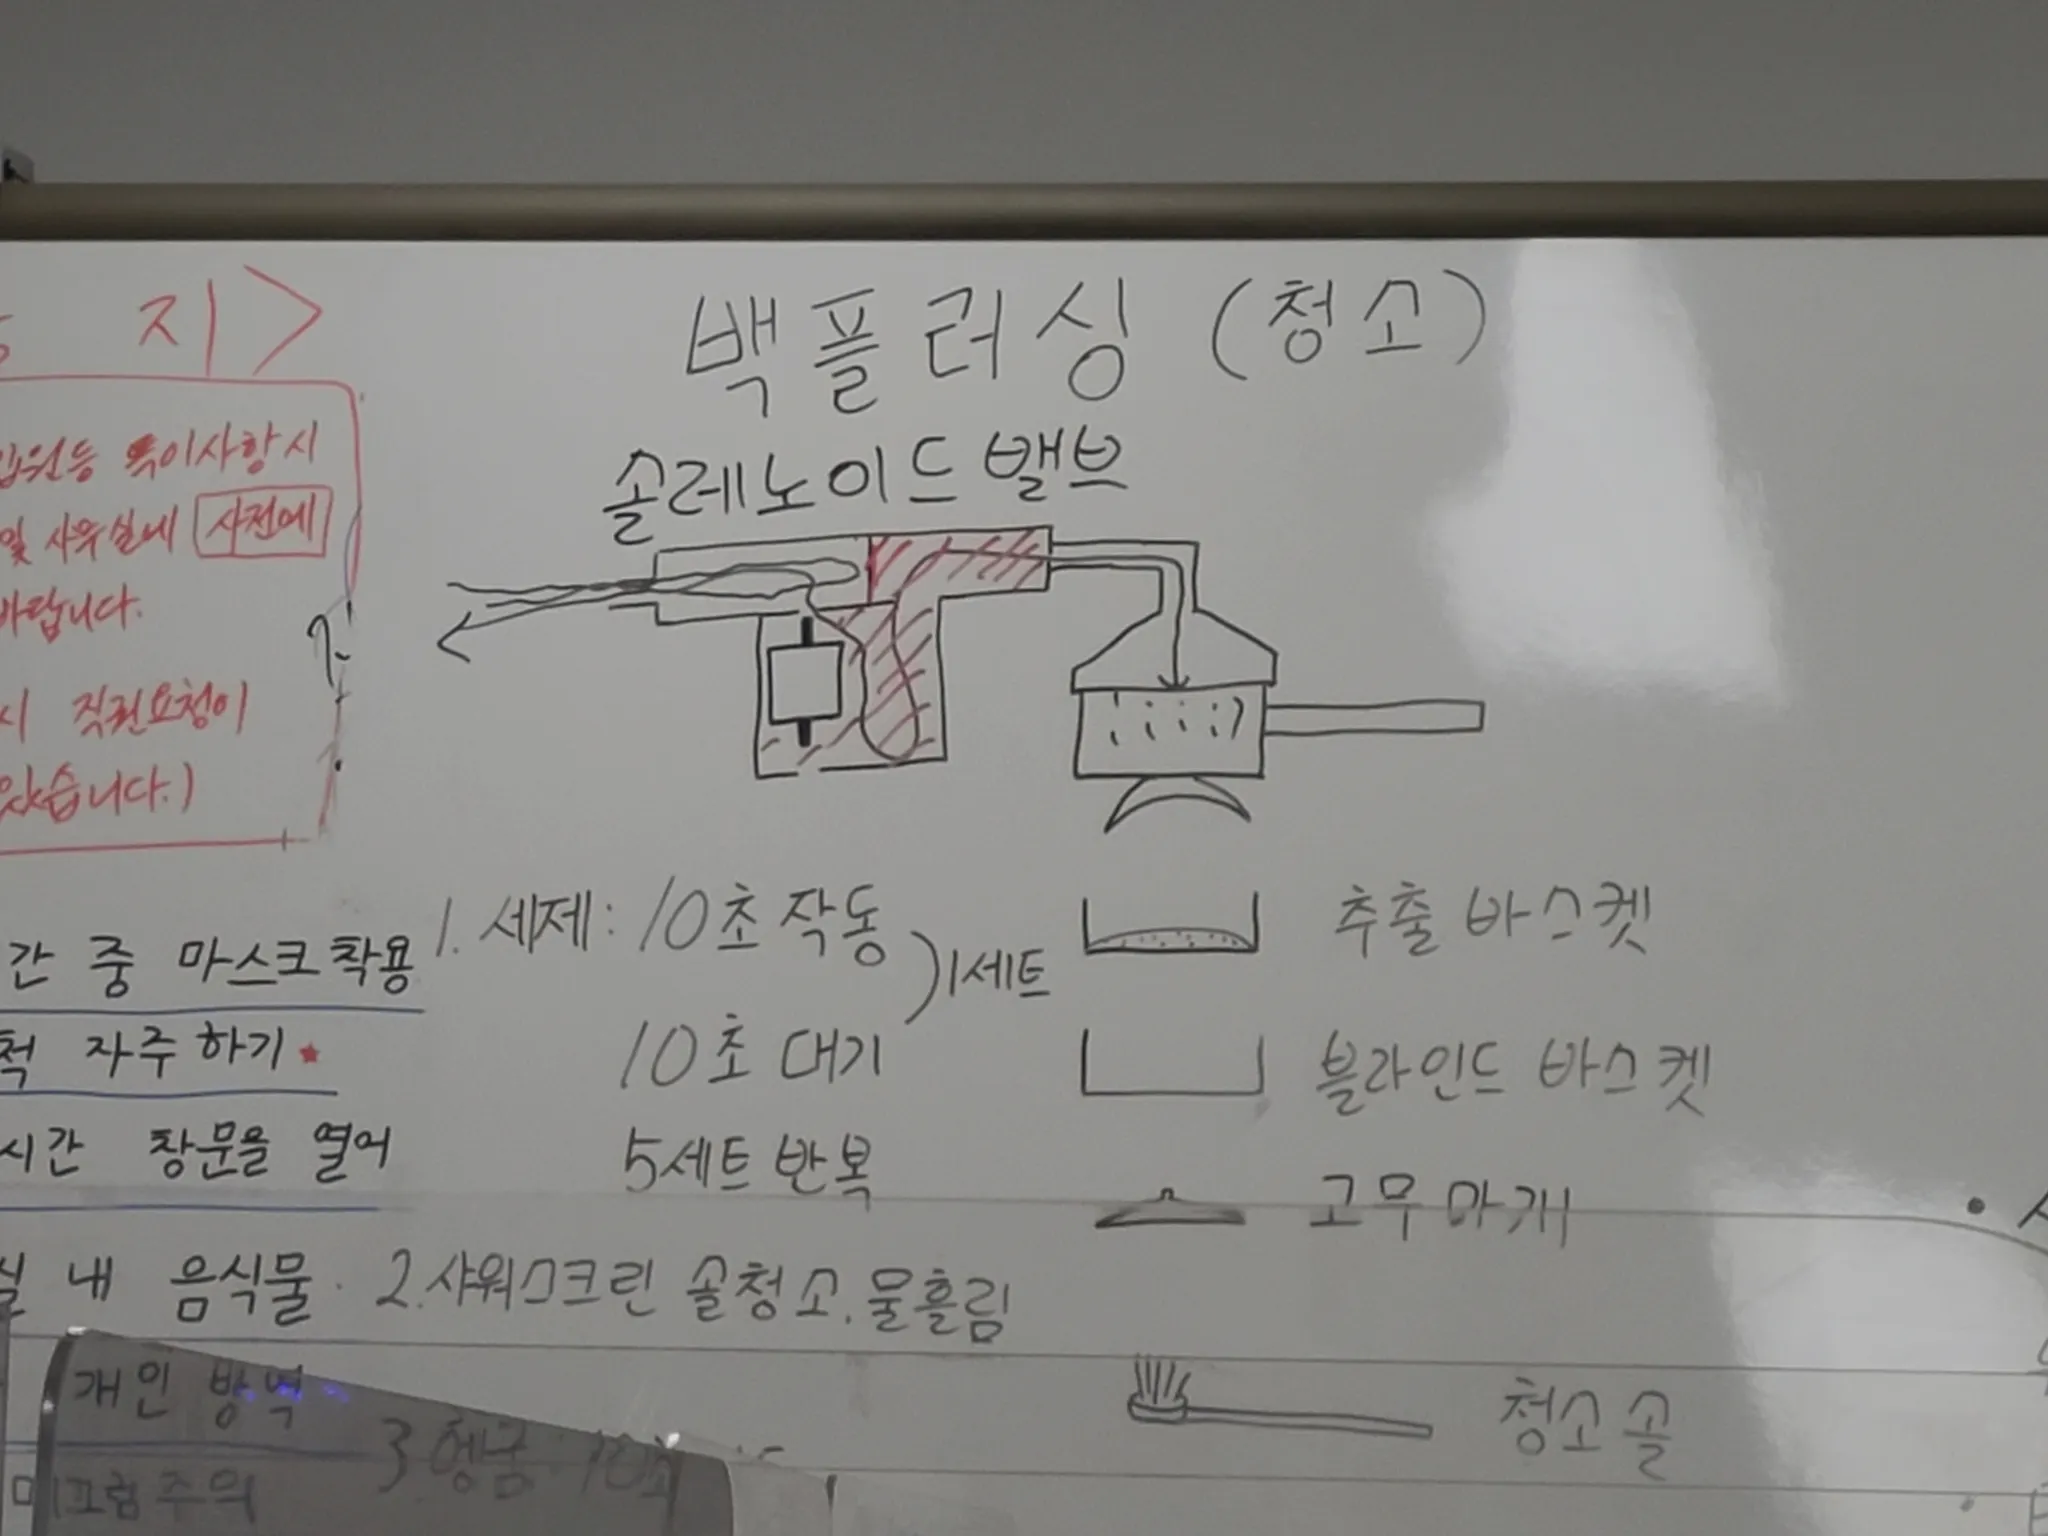 지>
백플러싱 (청소)
솔레노이드 밸브
특이사항시
및 사무실내 사전에
바랍니다.
시 직권요청이
있습니다.)
1. 세제: 10초 작동
)1세트
10초 대기
5세트 반복
2. 샤워스크린 솔청소. 물흘림
3. 헹굼: 10초
추출 바스켓
블라인드 바스켓
고무 마개
청소 솔
간 중 마스크 착용
척 자주 하기
시간 창문을 열어
실 내 음식물
개인 방역
미끄럼주의